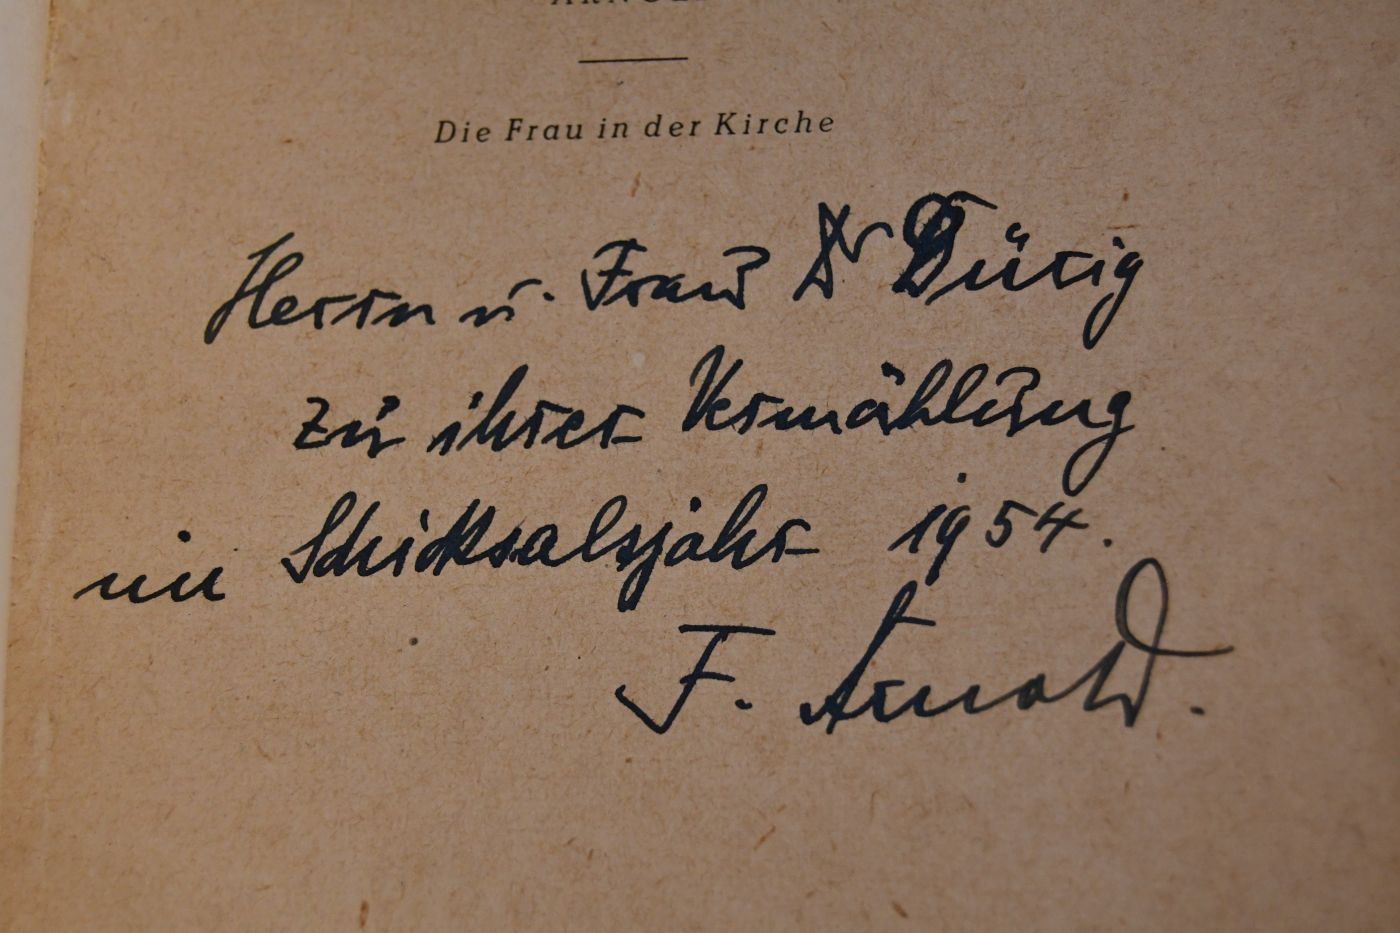 Die Frau in der Kirche
Herrn u. Frau Dr Dürig
zu ihrer Vermählung
im Schicksalsjahr 1954.
F. Arnold.